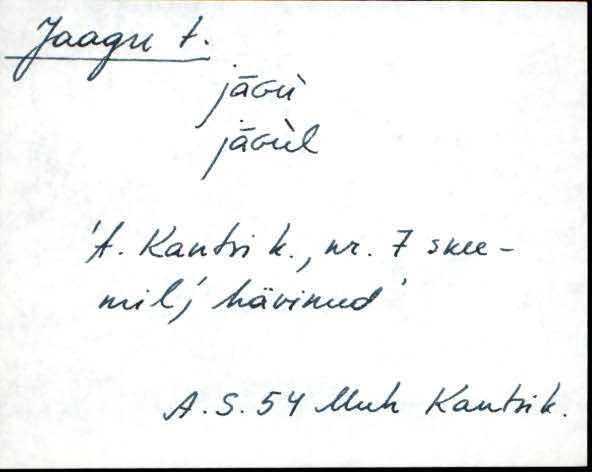 Jaagu t.
jāɢù
jāɢùl
't. Kantsi k., nr. 7 skee-
mil', hävinud'
A. S. 54 Muh Kantsi k.